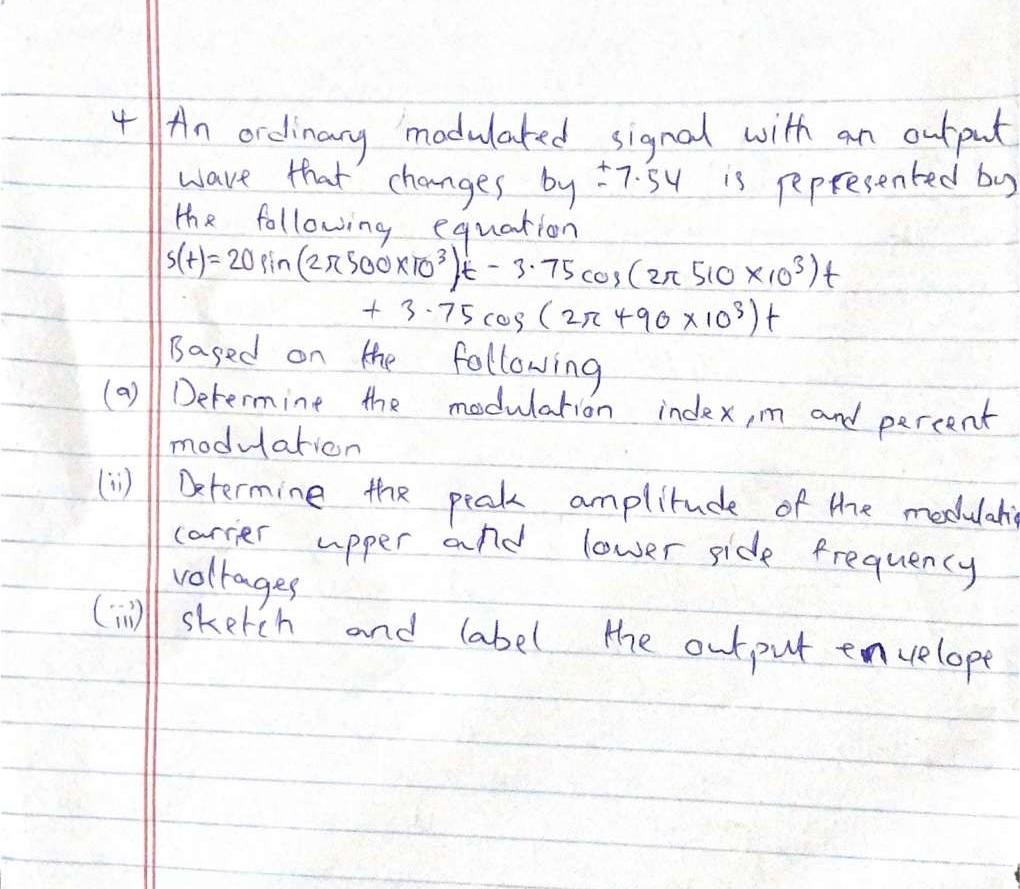 4 An ordinary modulated signal with an output
wave that changes by ±7.54 is represented by
the following equation
s(t) = 20 sin (2π 500×10³)t - 3.75 cos (2π 510 ×10³)t
+ 3.75 cos (2π 490 ×10³)t
Based on the following
(a) Determine the modulation index, m and percent
modulation
(ii) Determine the peak amplitude of the modulatio
carrier upper and lower side frequency
voltages
(iii) sketch and label the output envelope